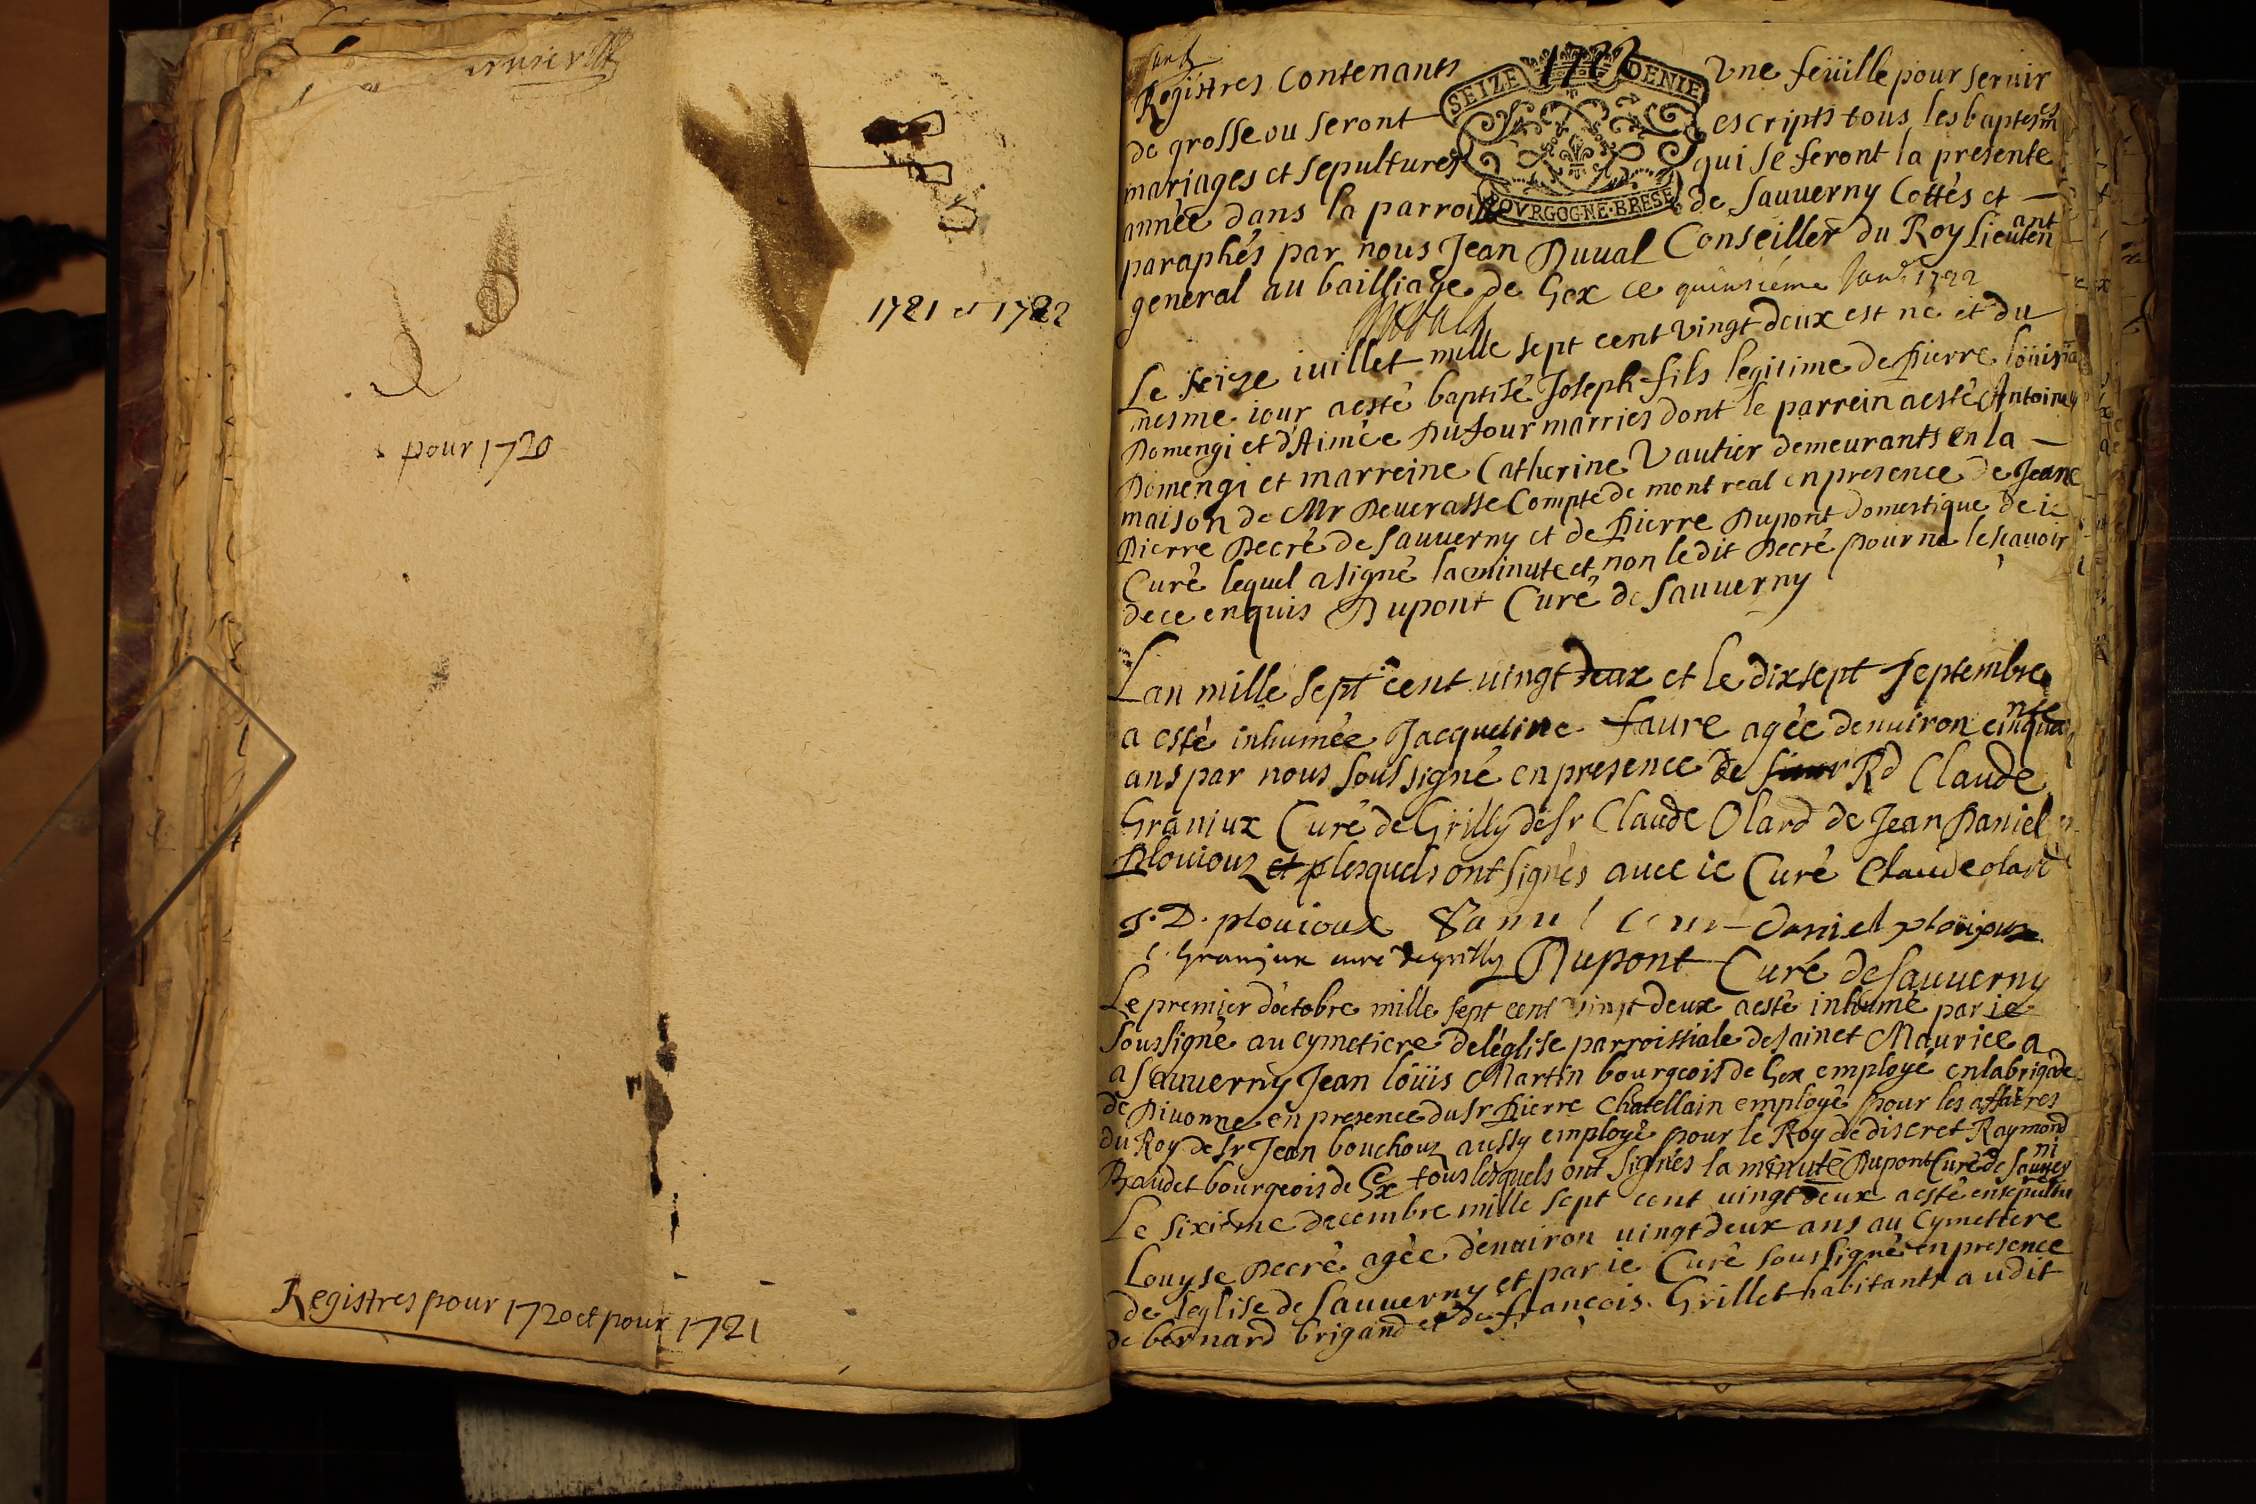 pour 1720
1721 et 1722
Registres pour 1720 et pour 1721
1722
SEIZE DENIE
BOVRGOGNE·BRESE
Registres Contenants Vne feüille pour seruir
de grosse ou seront escripts tous les baptesmes
mariages et sepultures qui se feront la presente
année dans la parroisse de Sauuerny Cottés et
paraphés par nous Jean Duual Conseiller du Roy Lieutenant
general au bailliage de Gex ce quinsiéme Janr 1722
Le seize iuillet mille sept cent vingt deux est né et du
mesme iour a esté baptisé Joseph fils legitime de Pierre loüis
Domengi et d'Aimée Dufour marriés dont le parrein a esté Antoine
Domengi et marreine Catherine Vautier demeurants en la
maison de Mr Deuerasse Compte de mont real en presence de Jean
Pierre Decré de Sauuerny et de Pierre Dupont domestique de ie
Curé lequel a signé la minute et non ledit Decré pour ne le scauoir
de ce enquis Dupont Curé de Sauuerny
Lan mille sept cent uingt deux et le dixsept septembre
a esté inhumée Jacqueline faure agée denuiron cinquante
ans par nous soussigné en presence de sieur Rd Claude
Graniux Curé de Grilly de Sr Claude Olard de Jean Daniel
Plouiouz et p lesquels ont signés auec ie Curé Claude olard
J. D. plouioux daniel ploujoux
C. Granjux curé de grilly Dupont Curé de Sauuerny
Le premier d'octobre mille sept cent vingt deux a esté inhumé par ie
soussigné au cymetiere de léglise parroissiale de sainct Maurice a
a Sauuerny Jean loüis Martin bourgeois de Gex employé en la brigade
de Diuonne en presence du Sr Pierre Chatellain employé pour les affaires
du Roy de Sr Jean bouchouz aussy employé pour le Roy de discret Raymond
Baudet bourgeois de Gex tous lesquels ont signés la minute Dupont Curé de Sauuerni
Le sixiéme decembre mille sept cent uingt deux a esté ensepulturée
Louyse Decré agée denuiron uingt deux ans au Cymettere
de leglise de Sauuerny et par ie Curé soussigné en presence
de bernard brigand et de françois Grillet habitants audit